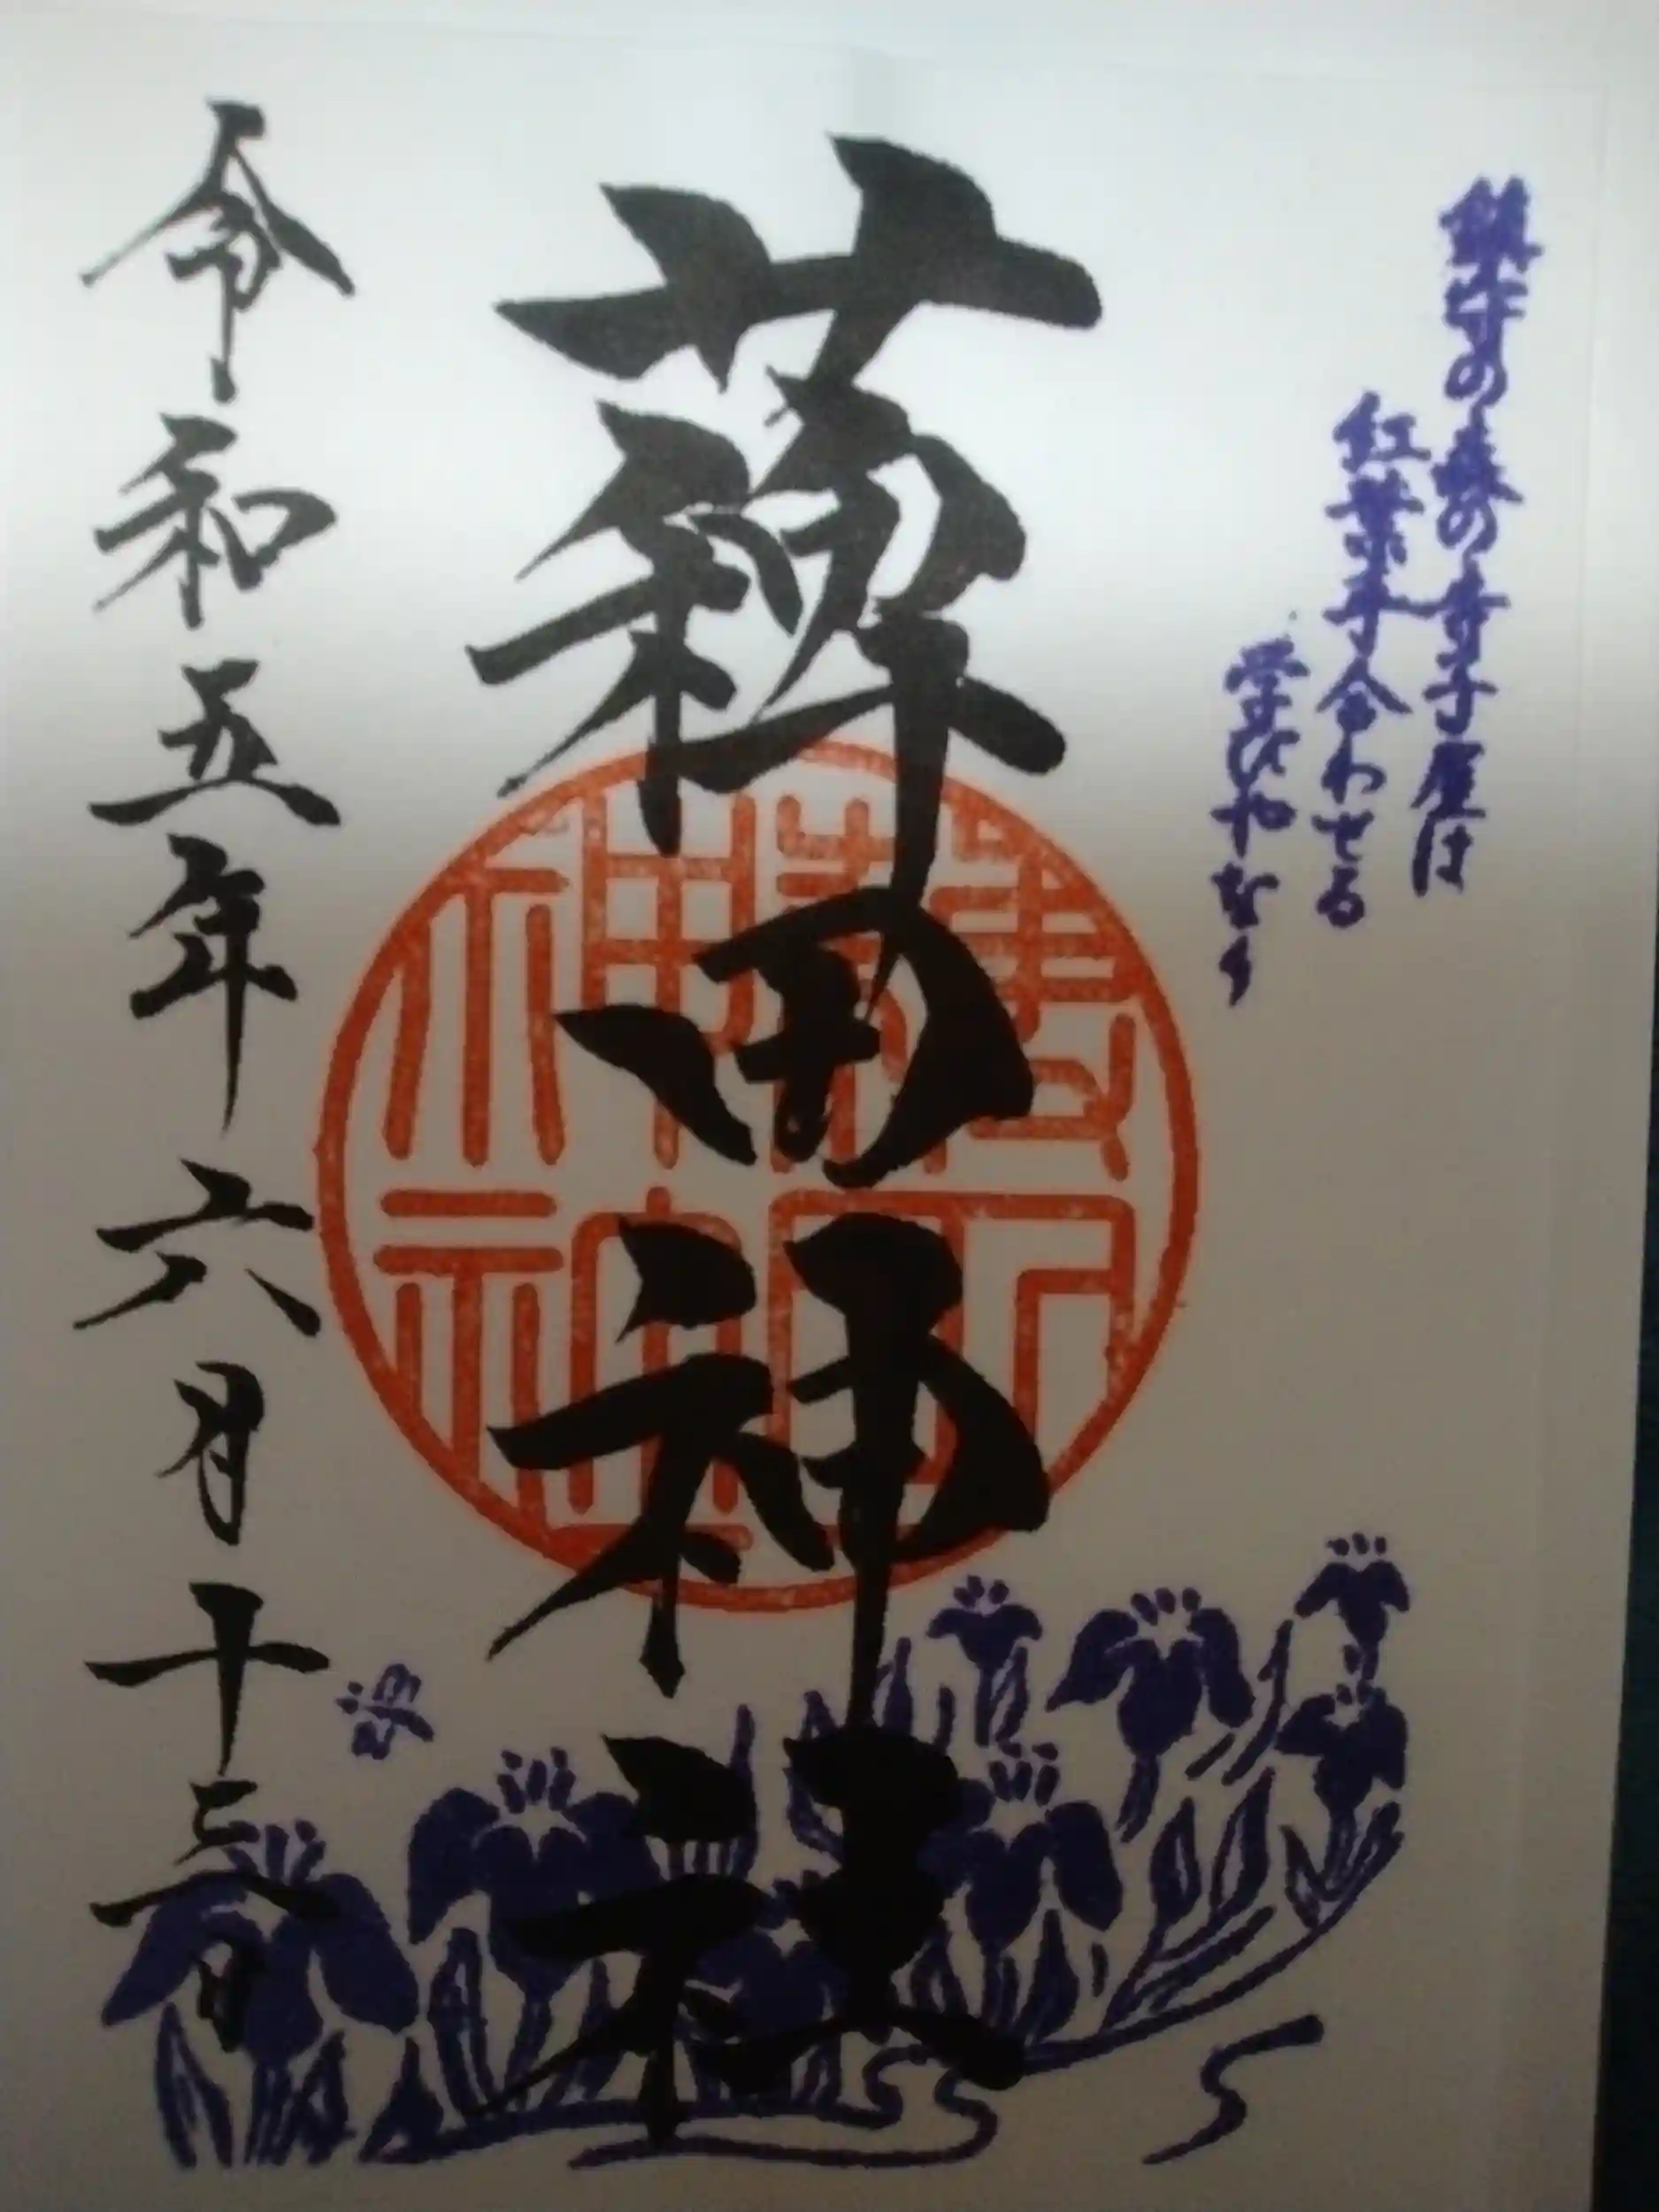 鎮守の森の寺子屋は
紅葉手合わせる
学びやなり
薭田神社
令和五年六月十三日